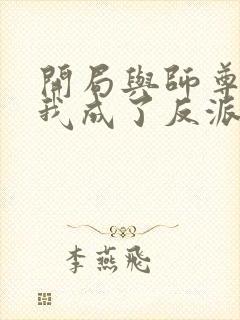 開局與師尊
我成了反派
李燕飛